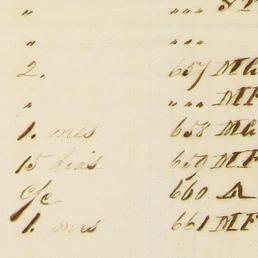 " ,,, ST
" ,,,
2. 657 MC
" ,,, MF
1. mes 658 MC
15 dias 659 MF
c/c 660 A
1. mes 661 MF